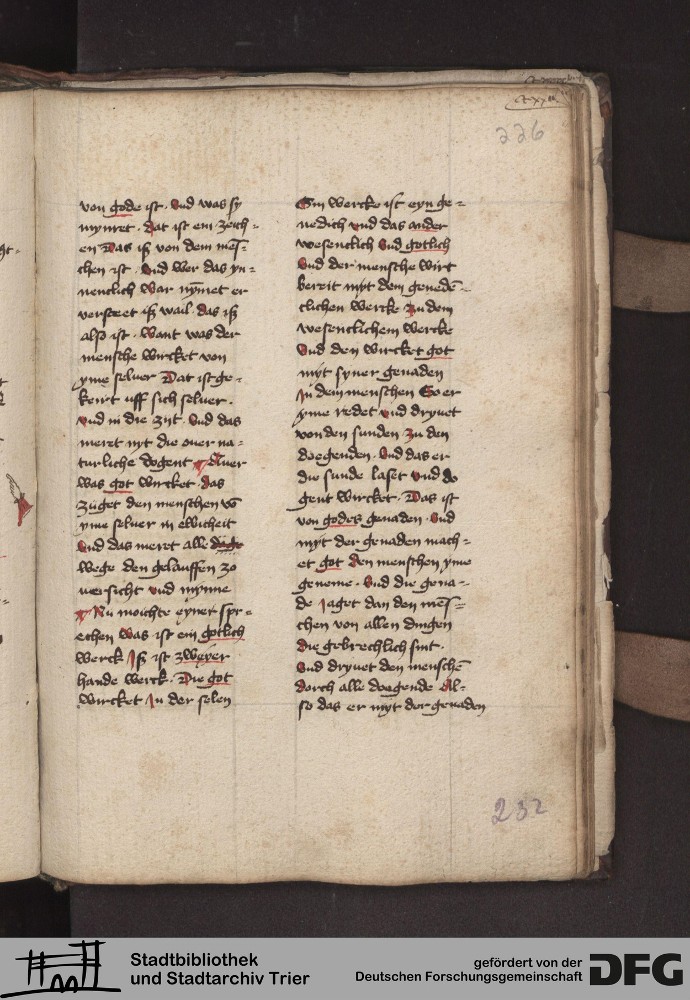 226
von gode ist · Und was sy
mynnet · dat ist ein zeich=
en Das iß von dem mēs=
chen ist · Und wer das yn=
nenclich war nym̄et er
versteet iß wail · das iß
also ist · Want was der
mensche wircket von
yme selver Dat ist ge=
keirt uff sich selver ·
Und in die zijt · Und das
meret nyt die over na=
turliche dogent Aver
was got wircket · das
zuget den menschen vō
yme selver in ewicheit
Und das meret alle
wege den gelauffen zo
versicht und mynne
Nu moichte eynet spr=
echen was ist ein gotlich
werck Iß ist zweyer
hande werck · Die got
wircket In der selen
Ein wercke ist eyn ge=
nedich und das ander
wesentlich Und gotlich
Und der mensche wirt
bereit myt dem genedē=
clichen wercke zu dem
wesentlichem wercke
Und den wircket got
myt syner genaden
In dem menschen So er
yme redet und dryvet
von den sunden zu den
doegenden · Und das er
die sunde laset und do
gent wircket · Das ist
von godes genaden · Und
myt der genaden mach=
et got den menschen yme
geneme · Und die gena=
de Jaget dan den mēs=
chen von allen dingen
die gebrechlich sint ·
Und dryvet den menschē
dorch alle doegende Al=
so das er myt der genaden
232
Stadtbibliothek
und Stadtarchiv Trier
gefördert von der
Deutschen Forschungsgemeinschaft
DFG